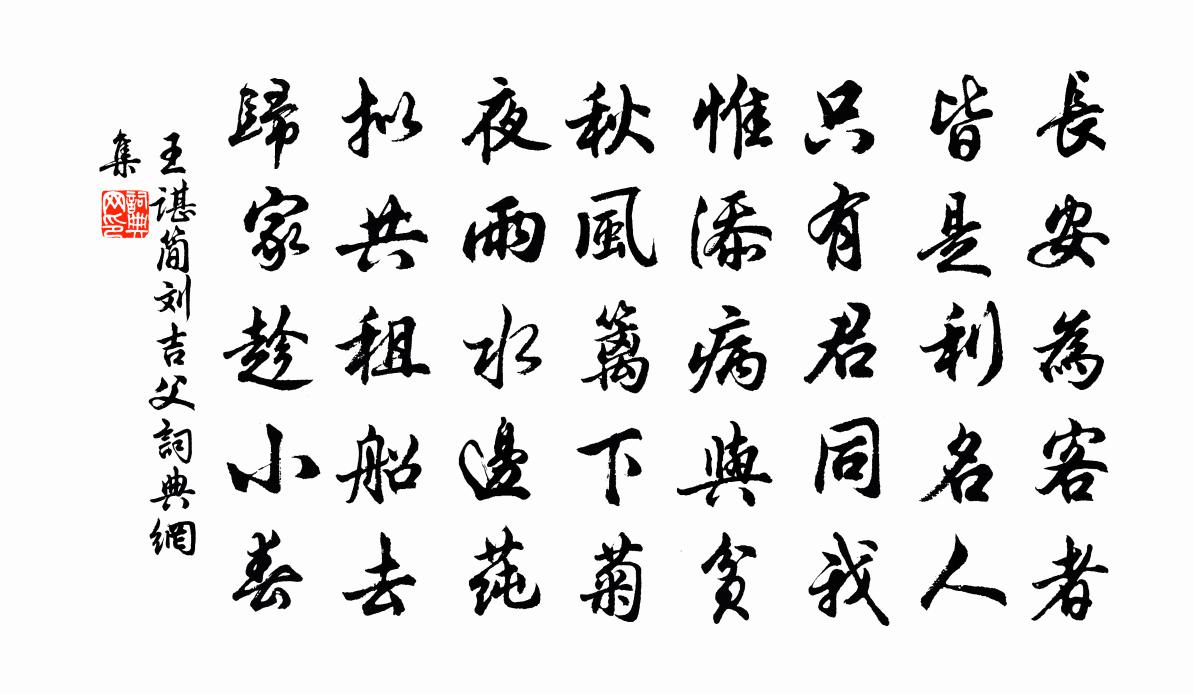 長安為客者
皆是利名人
只有君同我
惟添病與貧
秋風籬下菊
夜雨水邊蒓
拟共租船去
歸家趁小春
王諶简刘吉父詞典網
集
詞典网印